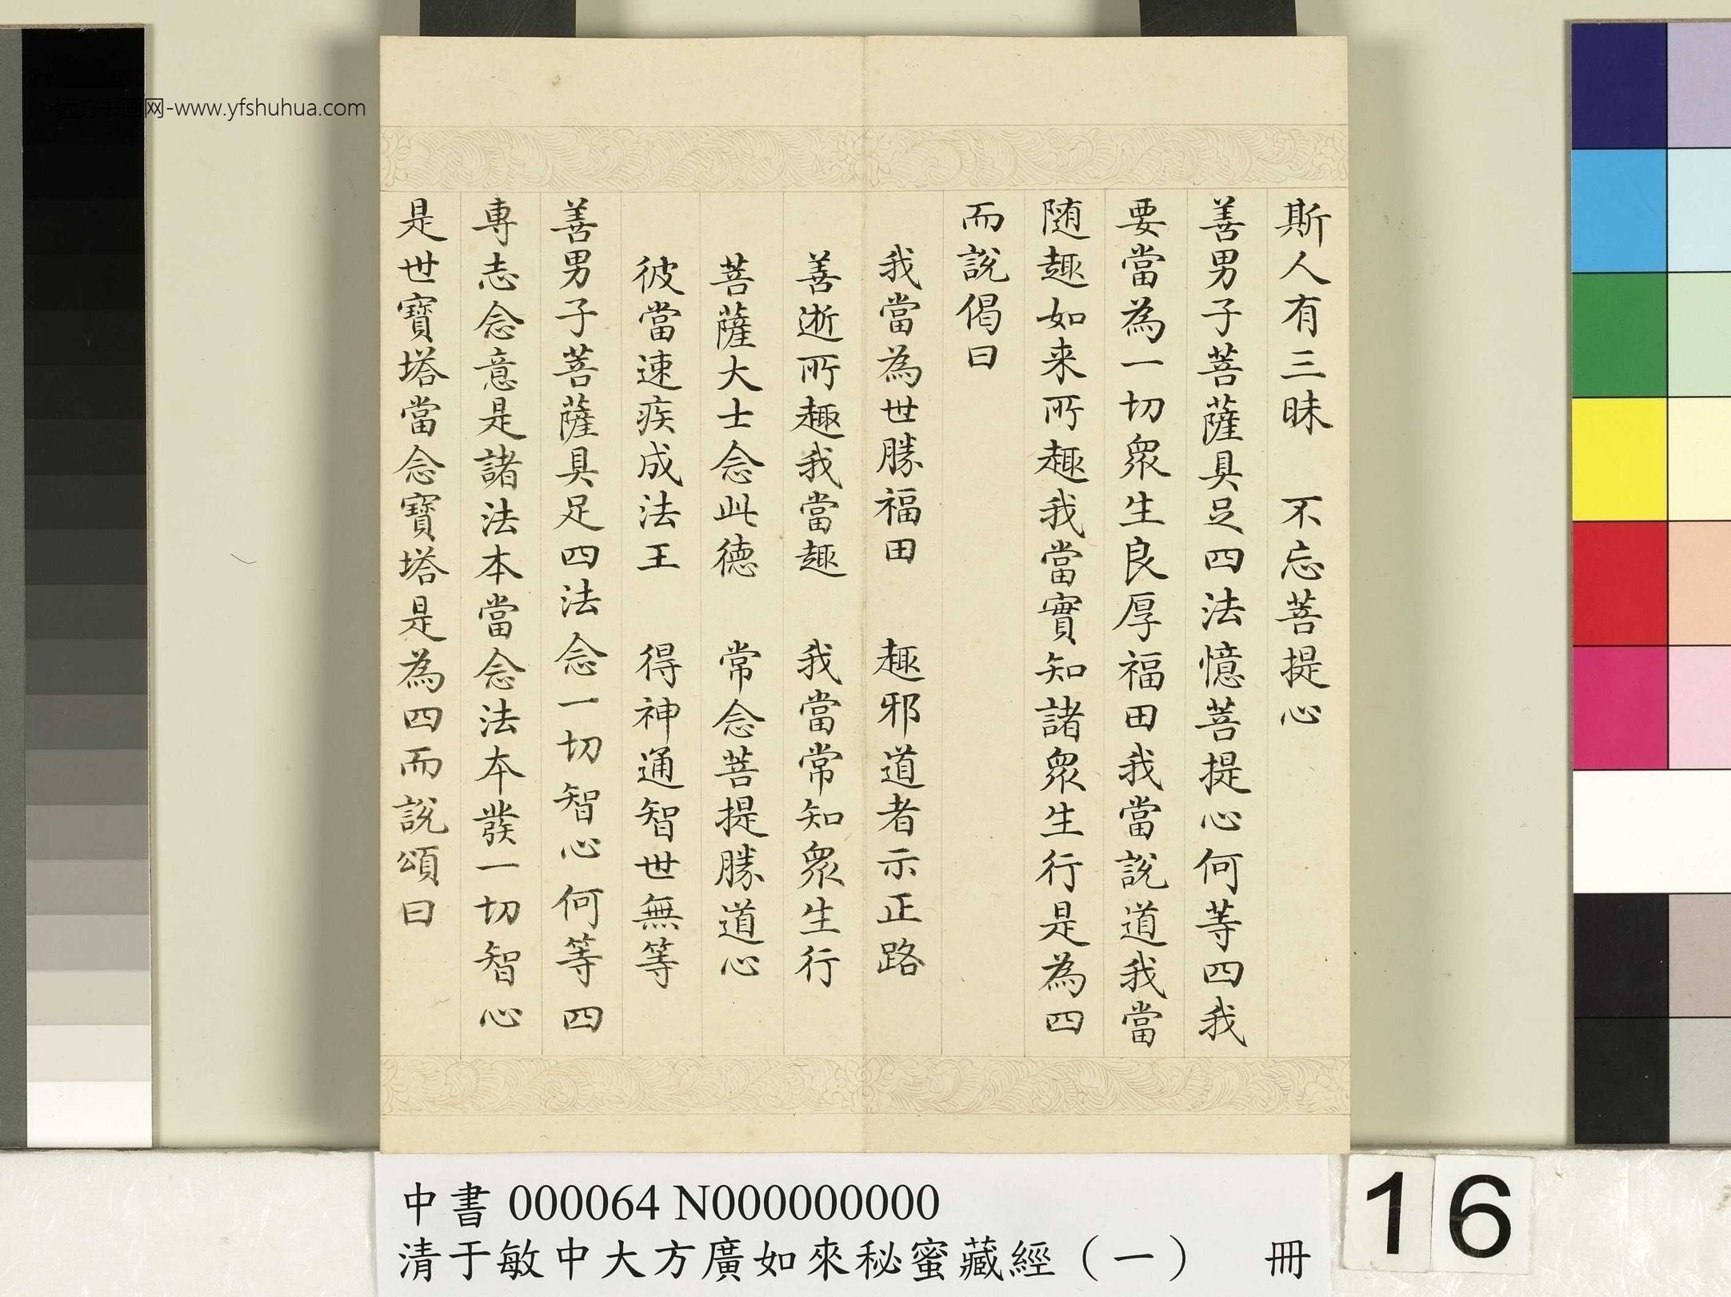 斯人有三昧　不忘菩提心
善男子菩薩具足四法憶菩提心何等四我
要當為一切衆生良厚福田我當說道我當
随趣如来所趣我當實知諸衆生行是為四
而說偈曰
我當為世勝福田　趣邪道者示正路
善逝所趣我當趣　我當常知衆生行
菩薩大士念此德　常念菩提勝道心
彼當速疾成法王　得神通智世無等
善男子菩薩具足四法念一切智心何等四
專志念意是諸法本當念法本發一切智心
是世寶塔當念寶塔是為四而說頌曰
中書 000064 N000000000
清于敏中大方廣如來秘蜜藏經（一）　冊
16
网-www.yfshuhua.com